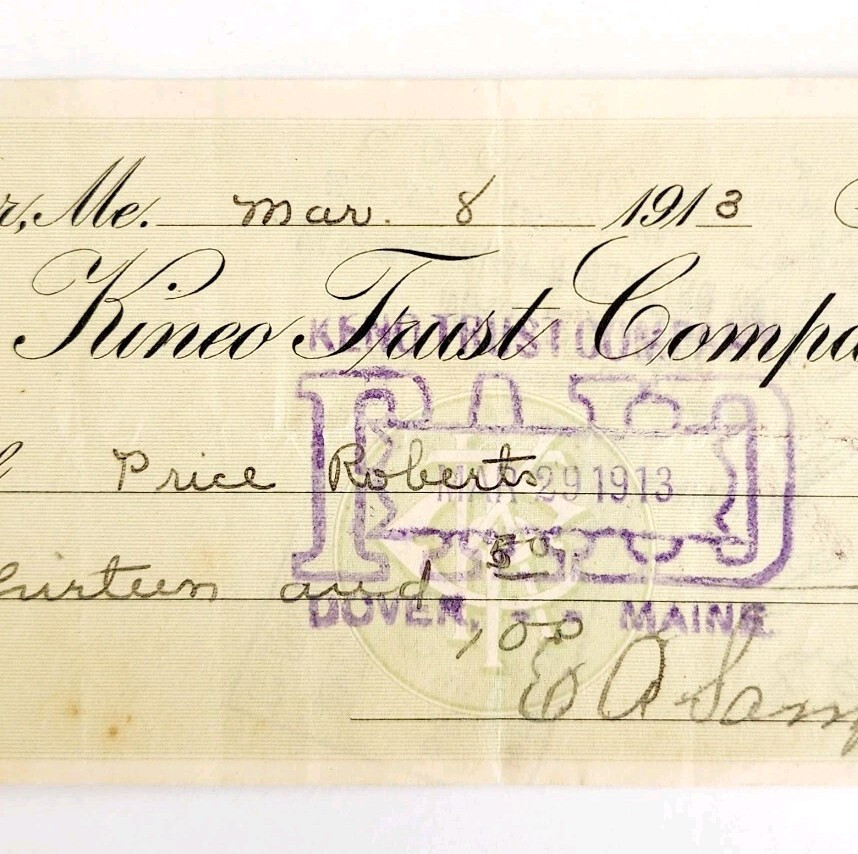 r, Me. Mar. 8 1913
Kineo Trust Compa
KENO TRUST COMPANY
Price Roberts
MAR 29 1913
PAID
urteen and 50
100
DOVER, MAINE
E A Sam